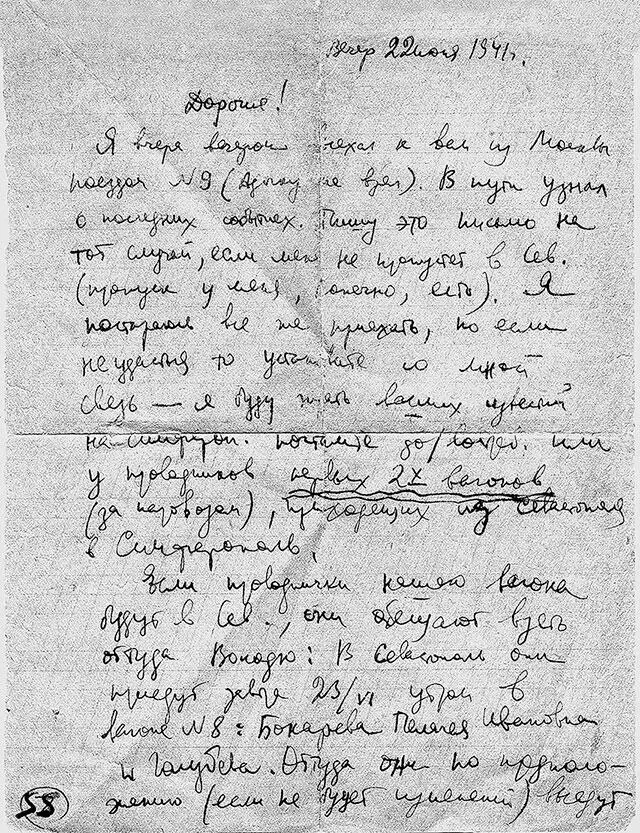 Вечер 22 июня 1941 г.
Дорогие!
Я вчера вечером выехал к вам из Москвы
поездом №9 ( не взял). В пути узнал
о последних событиях. Пишу это письмо на
тот случай, если меня не пропустят в Сев.
(пропуск у меня, конечно, есть). Я
постараюсь все же приехать, но если
не удастся то установите со мной
связь — я буду ждать ваших известий
на Симфероп. почтамте до/востреб. или
у проводников первых 2х вагонов
(за паровозом), приходящих из Севастополя
в Симферополь.
Если проводнички нашего вагона
будут в Сев., они обещают взять
оттуда Володю: В Севастополь они
приедут завтра 23/VI утром в
вагоне №8: Бокарева Пелагея Ивановна
и Голубева. Оттуда они по предполо-
жению (если не будет изменений) выедут
58